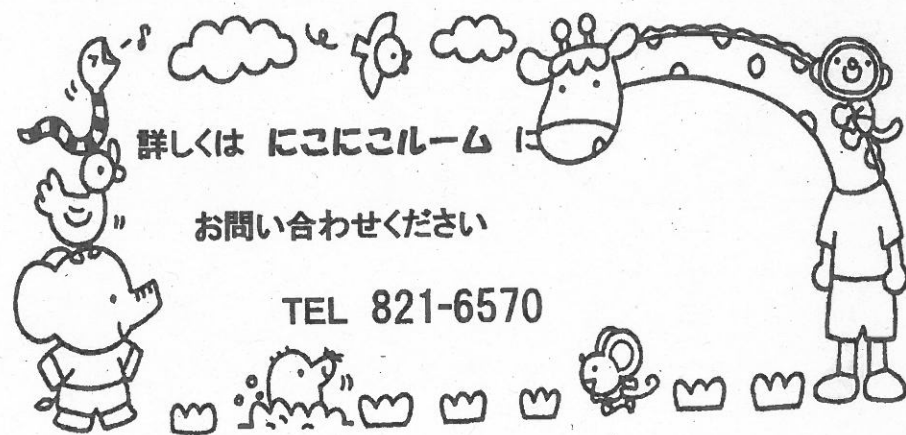 詳しくは にこにこルーム に
お問い合わせください
TEL 821-6570